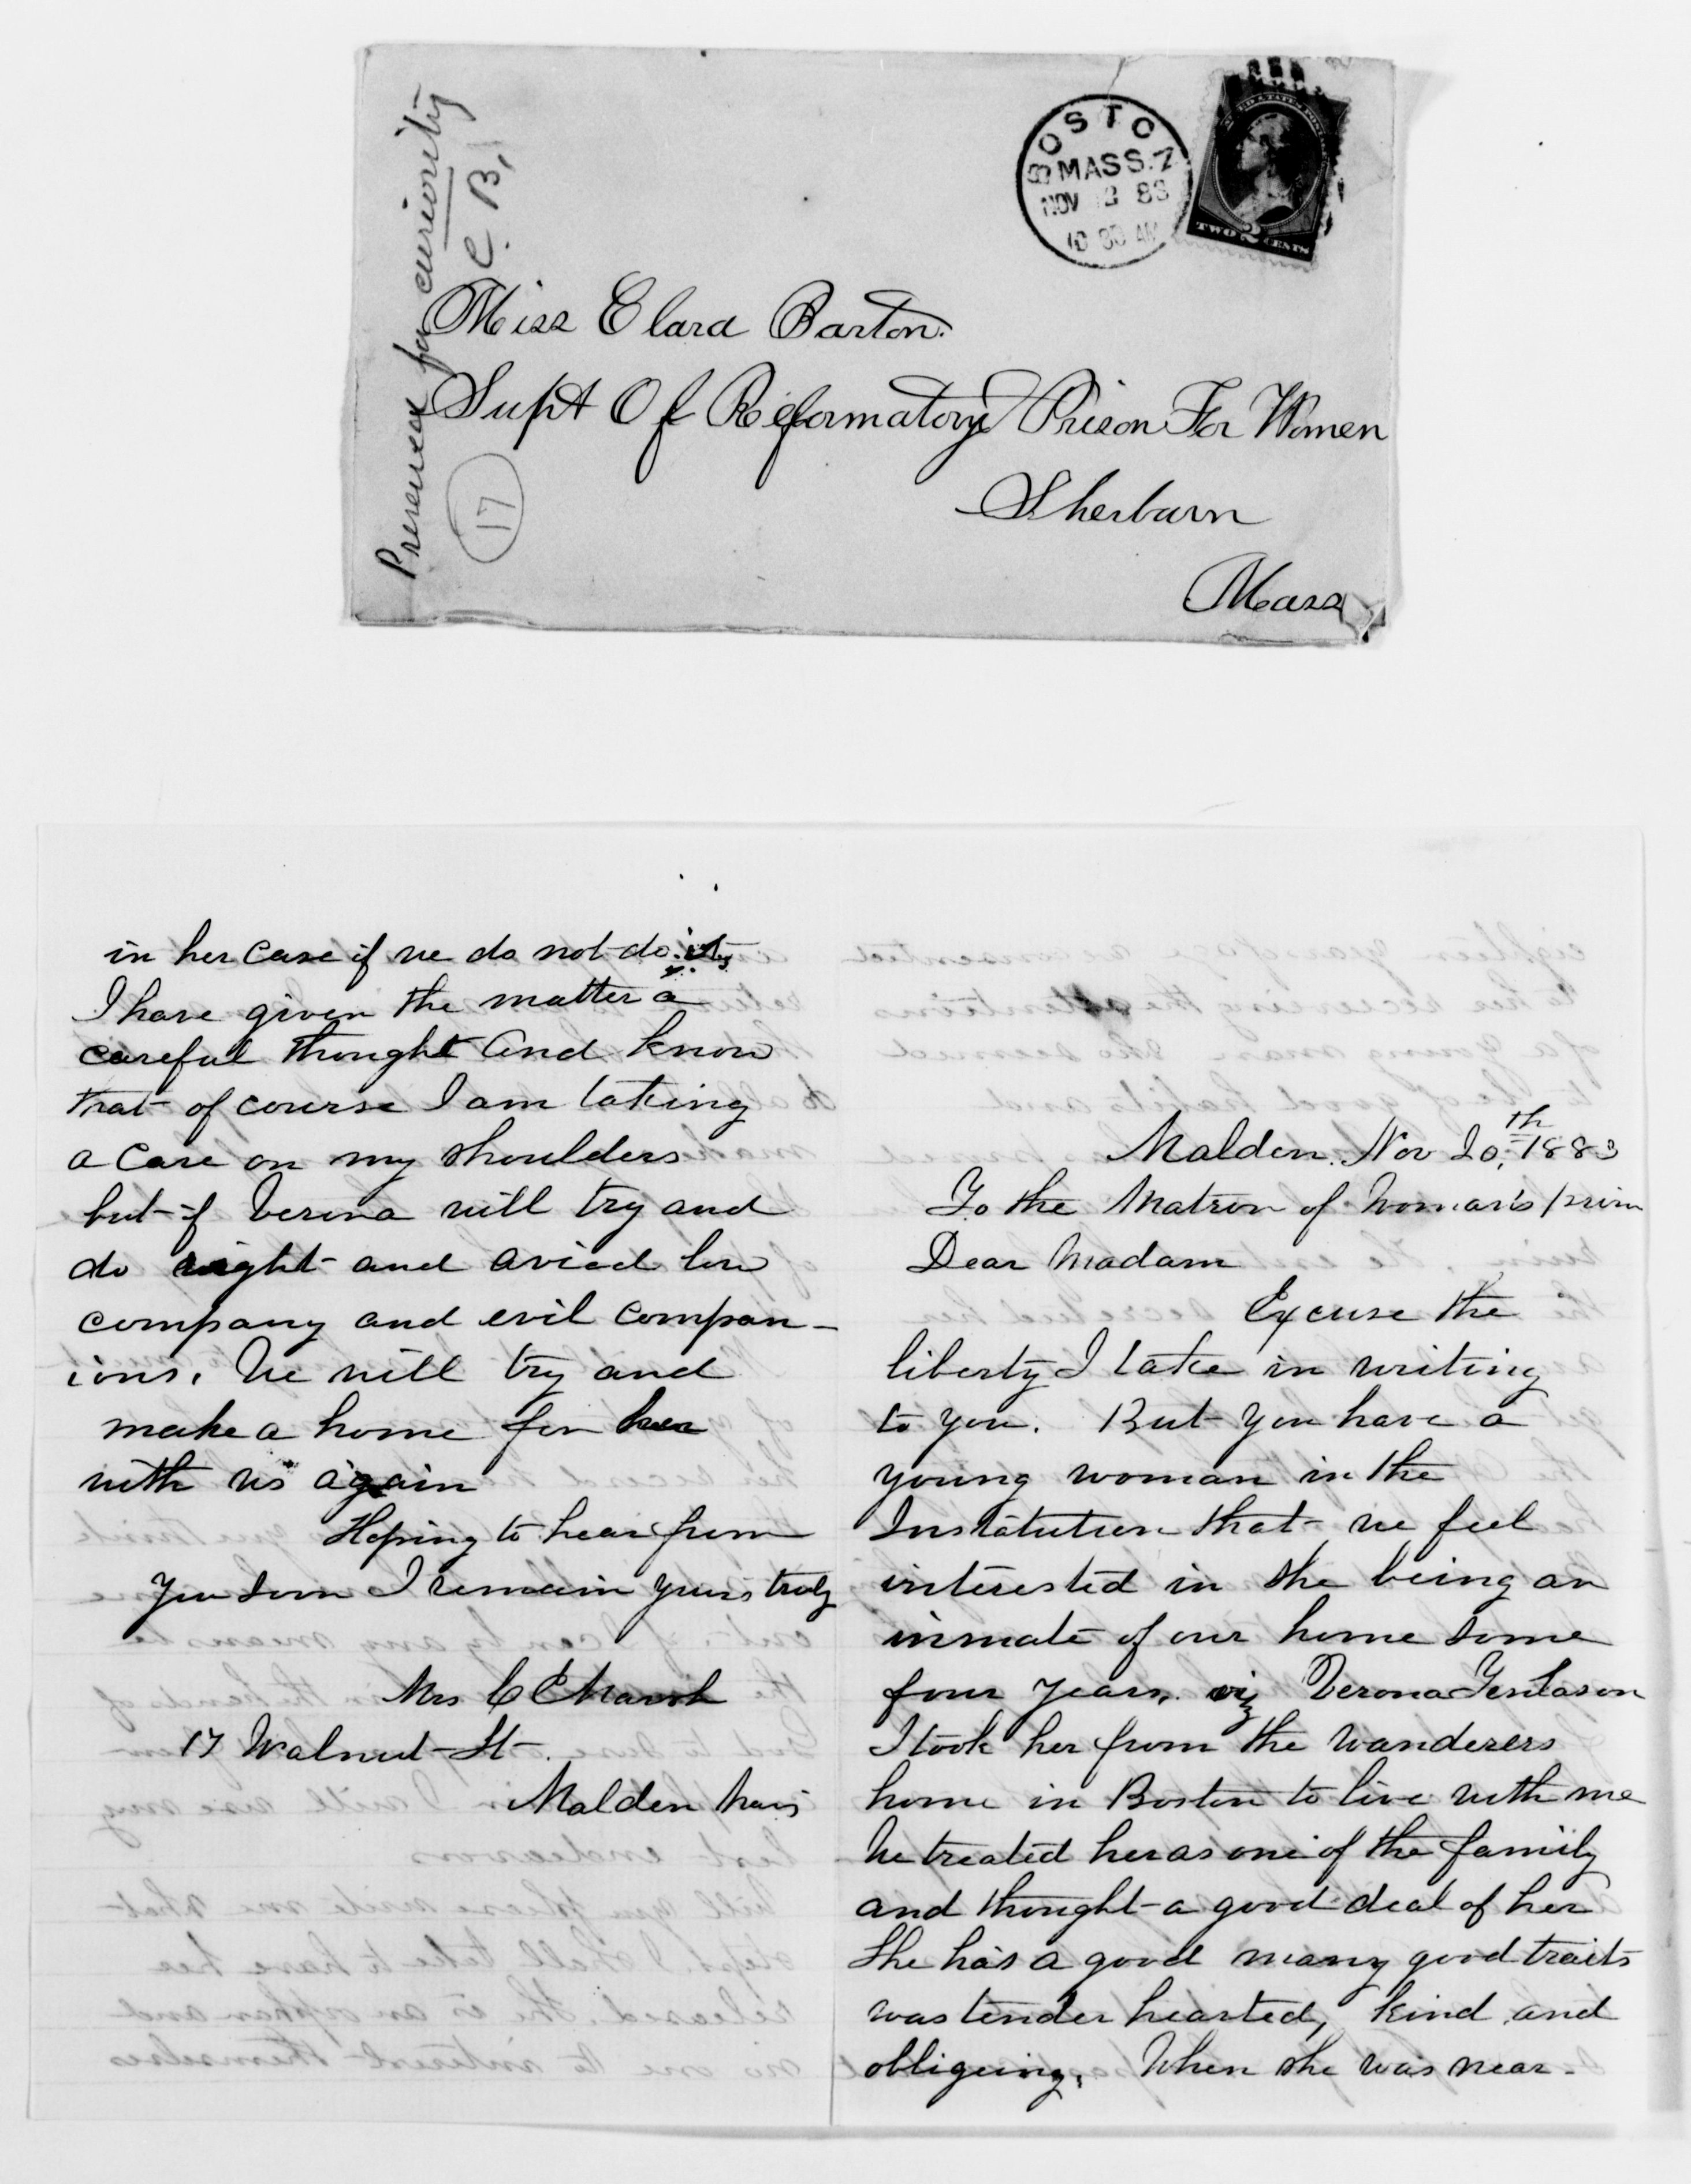 Preserved for curiosity
C. B.
17
BOSTON
MASS.
NOV 88
10 30 AM
UNITED STATES POST
TWO 2 CENTS
Miss Clara Barton.
Supt Of Reformatory Prison For Women
Sherburn
Mass
in her case if we do not do it,
I have given the matter a
careful thought and know
that of course I am taking
a care on my shoulders
but if Verona will try and
do right and aviod low
company and evil compan-
ions. We will try and
make a home for her
with us again
Hoping to hear from
you soon I remain yours truly
Mrs C E Marsh
17 Walnut St.
Malden Mass
Malden. Nov 20,th 1883
To the Matron of Woman's prison
Dear Madam
Excuse the
liberty I take in writing
to you. But you have a
young woman in the
Institution that we feel
interested in she being an
inmate of our home some
four years. viz Verona
I took her from the wanderers
home in Boston to live with me
We treated her as one of the family
and thought a good deal of her
She has a good many good traits
was tender hearted, kind and
obligeing. When she was near-